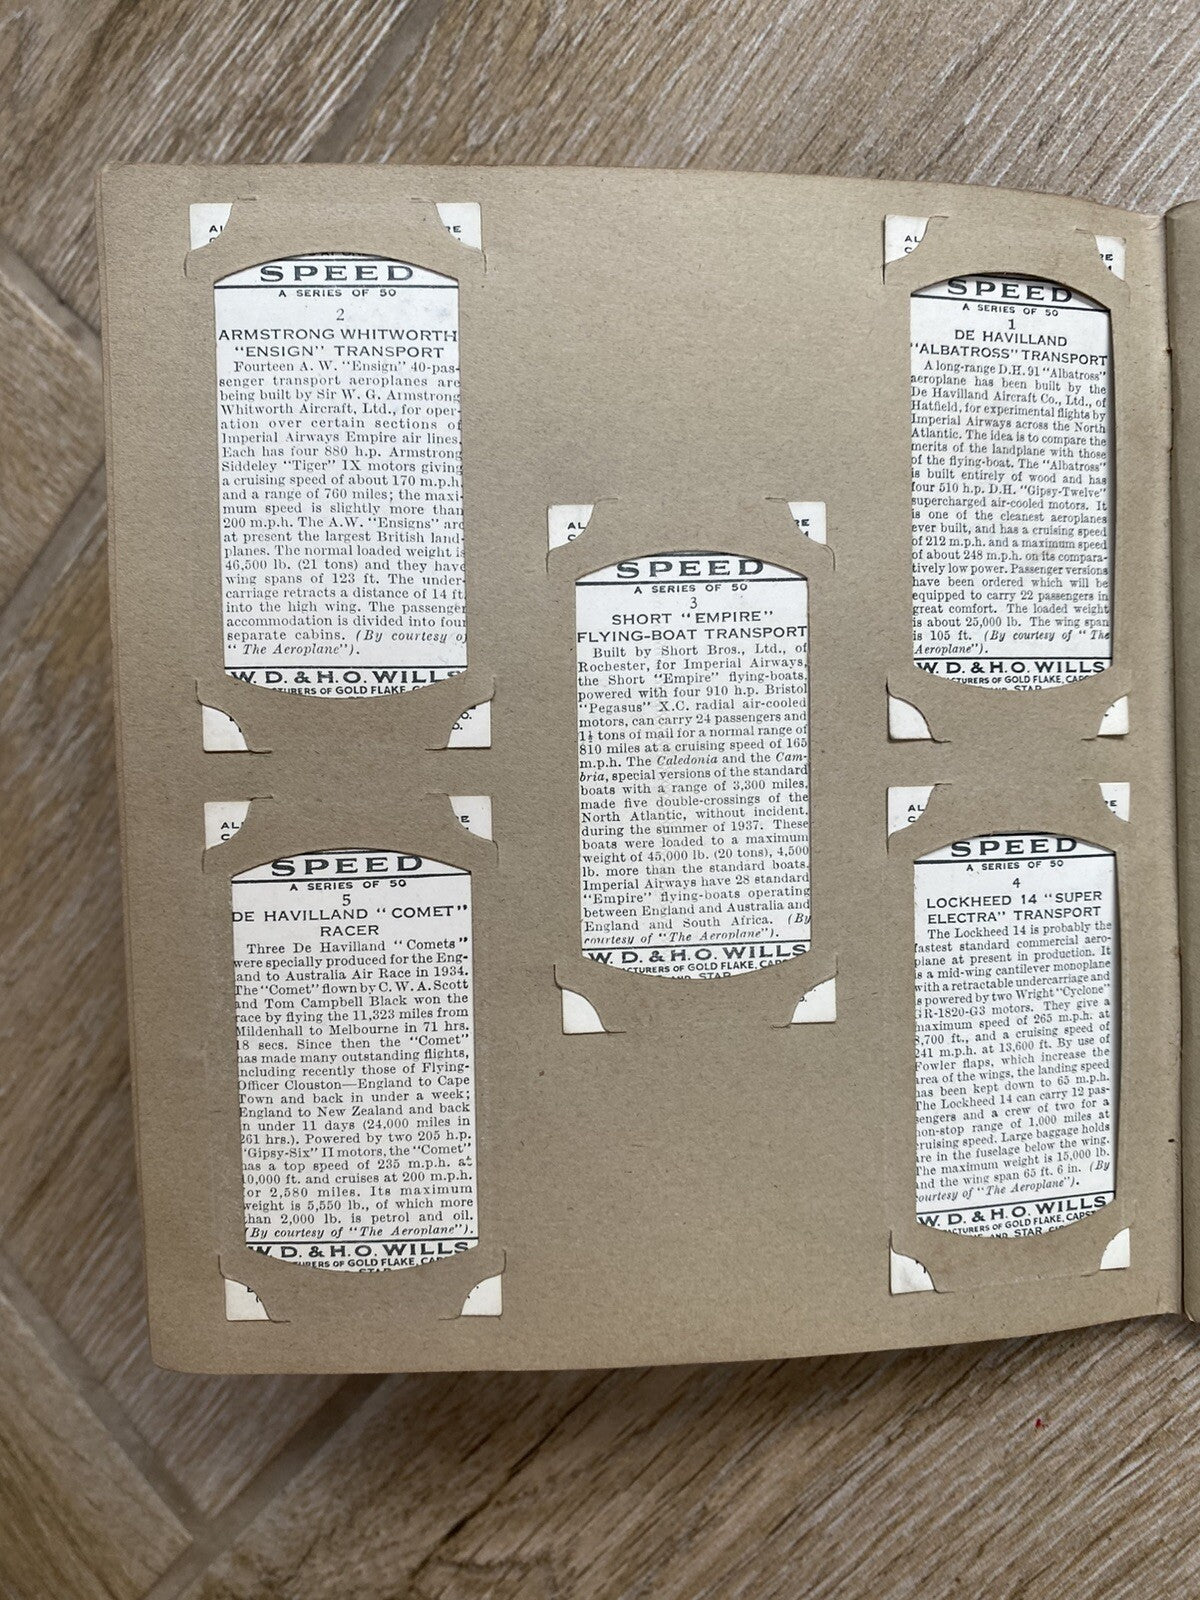 AL RE
SPEED
A SERIES OF 50
2
ARMSTRONG WHITWORTH
"ENSIGN" TRANSPORT
Fourteen A. W. "Ensign" 40-pas-
senger transport aeroplanes are
being built by Sir W. G. Armstrong
Whitworth Aircraft, Ltd., for oper-
ation over certain sections of
Imperial Airways Empire air lines.
Each has four 880 h.p. Armstrong
Siddeley "Tiger" IX motors giving
a cruising speed of about 170 m.p.h.
and a range of 760 miles; the maxi-
mum speed is slightly more than
200 m.p.h. The A.W. "Ensigns" are
at present the largest British land-
planes. The normal loaded weight is
46,500 lb. (21 tons) and they have
wing spans of 123 ft. The under-
carriage retracts a distance of 14 ft.
into the high wing. The passenger
accommodation is divided into four
separate cabins. (By courtesy of
"The Aeroplane").
W. D. & H. O. WILLS
TURERS OF GOLD FLAKE,
AL RE
SPEED
A SERIES OF 50
1
DE HAVILLAND
"ALBATROSS" TRANSPORT
A long-range D.H. 91 "Albatross"
aeroplane has been built by the
De Havilland Aircraft Co., Ltd., of
Hatfield, for experimental flights by
Imperial Airways across the North
Atlantic. The idea is to compare the
merits of the landplane with those
of the flying-boat. The "Albatross"
is built entirely of wood and has
four 510 h.p. D.H. "Gipsy-Twelve"
supercharged air-cooled motors. It
is one of the cleanest aeroplanes
ever built, and has a cruising speed
of 212 m.p.h. and a maximum speed
of about 248 m.p.h. on its compara-
tively low power. Passenger versions
have been ordered which will be
equipped to carry 22 passengers in
great comfort. The loaded weight
is about 25,000 lb. The wing span
is 105 ft. (By courtesy of "The
Aeroplane").
W. D. & H. O. WILLS
CTURERS OF GOLD FLAKE, CAPS
STAR
AL RE
SPEED
A SERIES OF 50
3
SHORT "EMPIRE"
FLYING-BOAT TRANSPORT
Built by Short Bros., Ltd., of
Rochester, for Imperial Airways,
the Short "Empire" flying-boats,
powered with four 910 h.p. Bristol
"Pegasus" X.C. radial air-cooled
motors, can carry 24 passengers and
1½ tons of mail for a normal range of
810 miles at a cruising speed of 165
m.p.h. The Caledonia and the Cam-
bria, special versions of the standard
boats with a range of 3,300 miles,
made five double-crossings of the
North Atlantic, without incident,
during the summer of 1937. These
boats were loaded to a maximum
weight of 45,000 lb. (20 tons), 4,500
lb. more than the standard boats.
Imperial Airways have 28 standard
"Empire" flying-boats operating
between England and Australia and
England and South Africa. (By
courtesy of "The Aeroplane").
W. D. & H. O. WILLS
CTURERS OF GOLD FLAKE, CAPS
STAR
AL RE
SPEED
A SERIES OF 50
5
DE HAVILLAND "COMET"
RACER
Three De Havilland "Comets"
were specially produced for the Eng-
land to Australia Air Race in 1934.
The "Comet" flown by C. W. A. Scott
and Tom Campbell Black won the
race by flying the 11,323 miles from
Mildenhall to Melbourne in 71 hrs.
18 secs. Since then the "Comet"
has made many outstanding flights,
including recently those of Flying-
Officer Clouston—England to Cape
Town and back in under a week;
England to New Zealand and back
in under 11 days (24,000 miles in
261 hrs.). Powered by two 205 h.p.
"Gipsy-Six" II motors, the "Comet"
has a top speed of 235 m.p.h. at
10,000 ft. and cruises at 200 m.p.h.
for 2,580 miles. Its maximum
weight is 5,550 lb., of which more
than 2,000 lb. is petrol and oil.
(By courtesy of "The Aeroplane").
W. D. & H. O. WILLS
TURERS OF GOLD FLAKE, CA
STAR
AL RE
SPEED
A SERIES OF 50
4
LOCKHEED 14 "SUPER
ELECTRA" TRANSPORT
The Lockheed 14 is probably the
fastest standard commercial aero-
plane at present in production. It
is a mid-wing cantilever monoplane
with a retractable undercarriage and
is powered by two Wright "Cyclone"
GR-1820-G3 motors. They give a
maximum speed of 265 m.p.h. at
8,700 ft., and a cruising speed of
241 m.p.h. at 13,600 ft. By use of
Fowler flaps, which increase the
area of the wings, the landing speed
has been kept down to 65 m.p.h.
The Lockheed 14 can carry 12 pas-
sengers and a crew of two for a
non-stop range of 1,000 miles at
cruising speed. Large baggage holds
are in the fuselage below the wing.
The maximum weight is 15,000 lb.
and the wing span 65 ft. 6 in. (By
courtesy of "The Aeroplane").
W. D. & H. O. WILLS
CTURERS OF GOLD FLAKE, CAPS
AND STAR